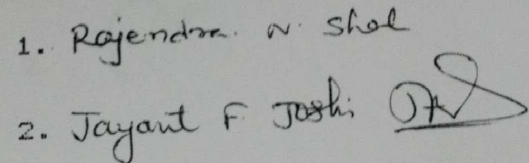 1. Rajendra. N. Shal
2. Jayant F Joshi